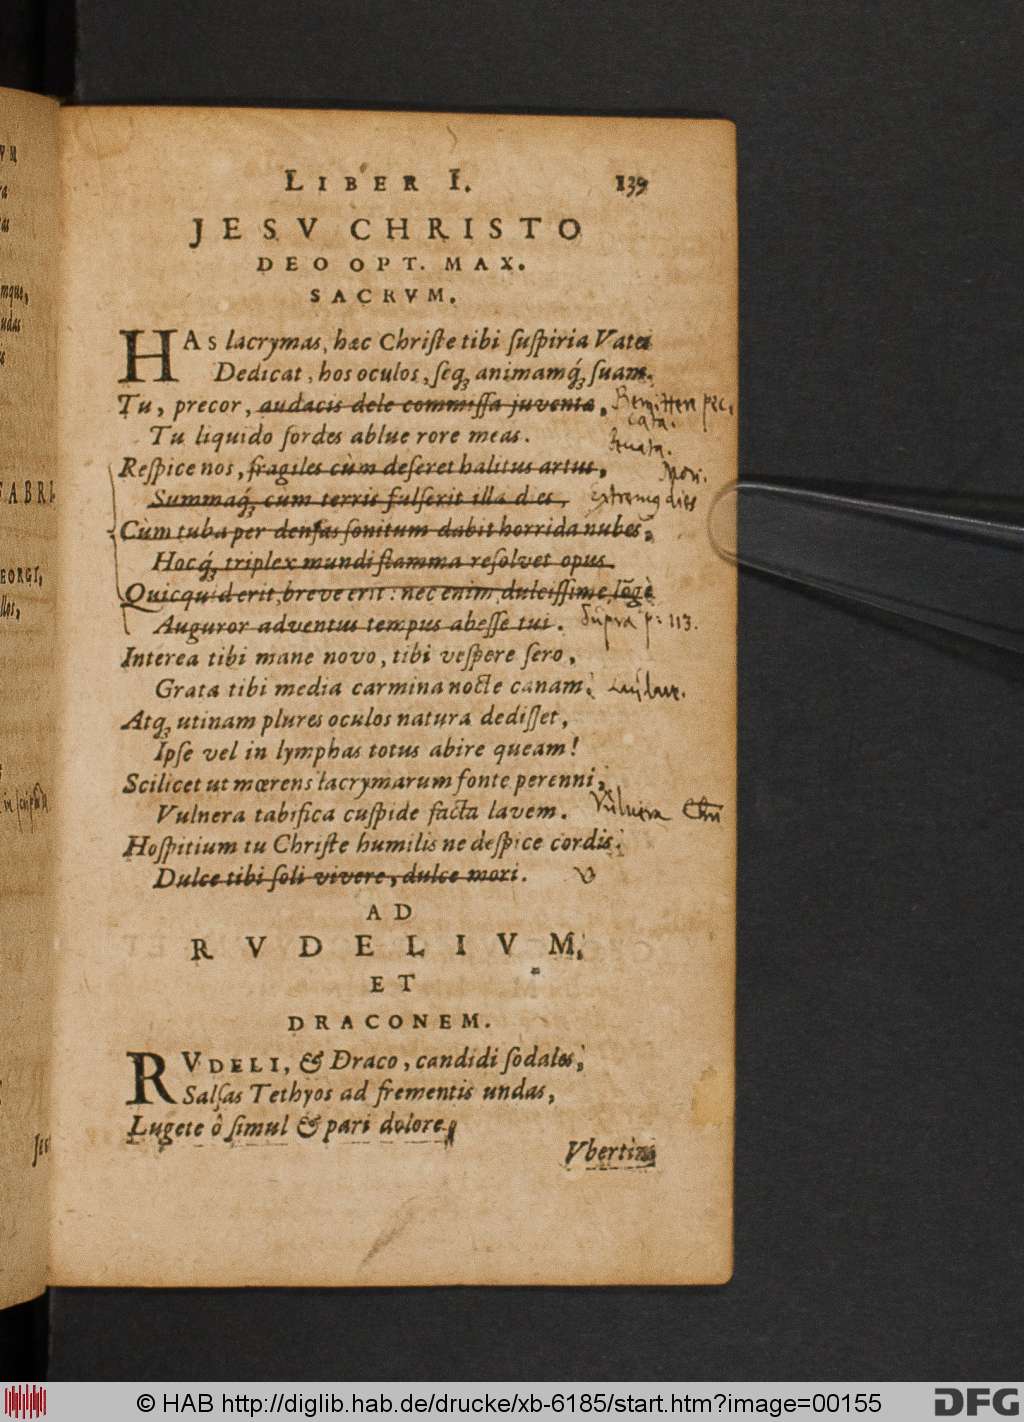 LIBER I. 139
JESV CHRISTO
DEO OPT. MAX.
SACRVM.
HAS lacrymas, hæc Christe tibi suspiria Vates
Dedicat, hos oculos, seq́ꝫ animamq́ꝫ suam.
Tu, precor, audacis dele commissa juventæ, Remitten pec,
cata.
Tu liquido sordes ablue rore meas.
Respice nos, fragiles cùm deseret halitus artus, Mori.
Summaq́ꝫ cum terris fulserit illa dies, extremq dies
Cùm tuba per densas sonitum dabit horrida nubes,
Hocq́ꝫ triplex mundi flamma resolvet opus.
Quicquid erit, breve erit: nec enim, dulcissime, lōgè
Auguror adventus tempus abesse tui. Supra p: 113.
Interea tibi mane novo, tibi vespere sero,
Grata tibi media carmina nocte canam.
Atqꝫ utinam plures oculos natura dedisset,
Ipse vel in lymphas totus abire queam!
Scilicet ut mœrens lacrymarum fonte perenni,
Vulnera tabifica cuspide facta lavem. Vulnera Chri
Hospitium tu Christe humilis ne despice cordis.
Dulce tibi soli vivere, dulce mori.
AD
RVDELIVM,
ET
DRACONEM.
RVDELI, & Draco, candidi sodales,
Salsas Tethyos ad frementis undas,
Lugete ô simul & pari dolore,
Vbertim
© HAB http://diglib.hab.de/drucke/xb-6185/start.htm?image=00155 DFG